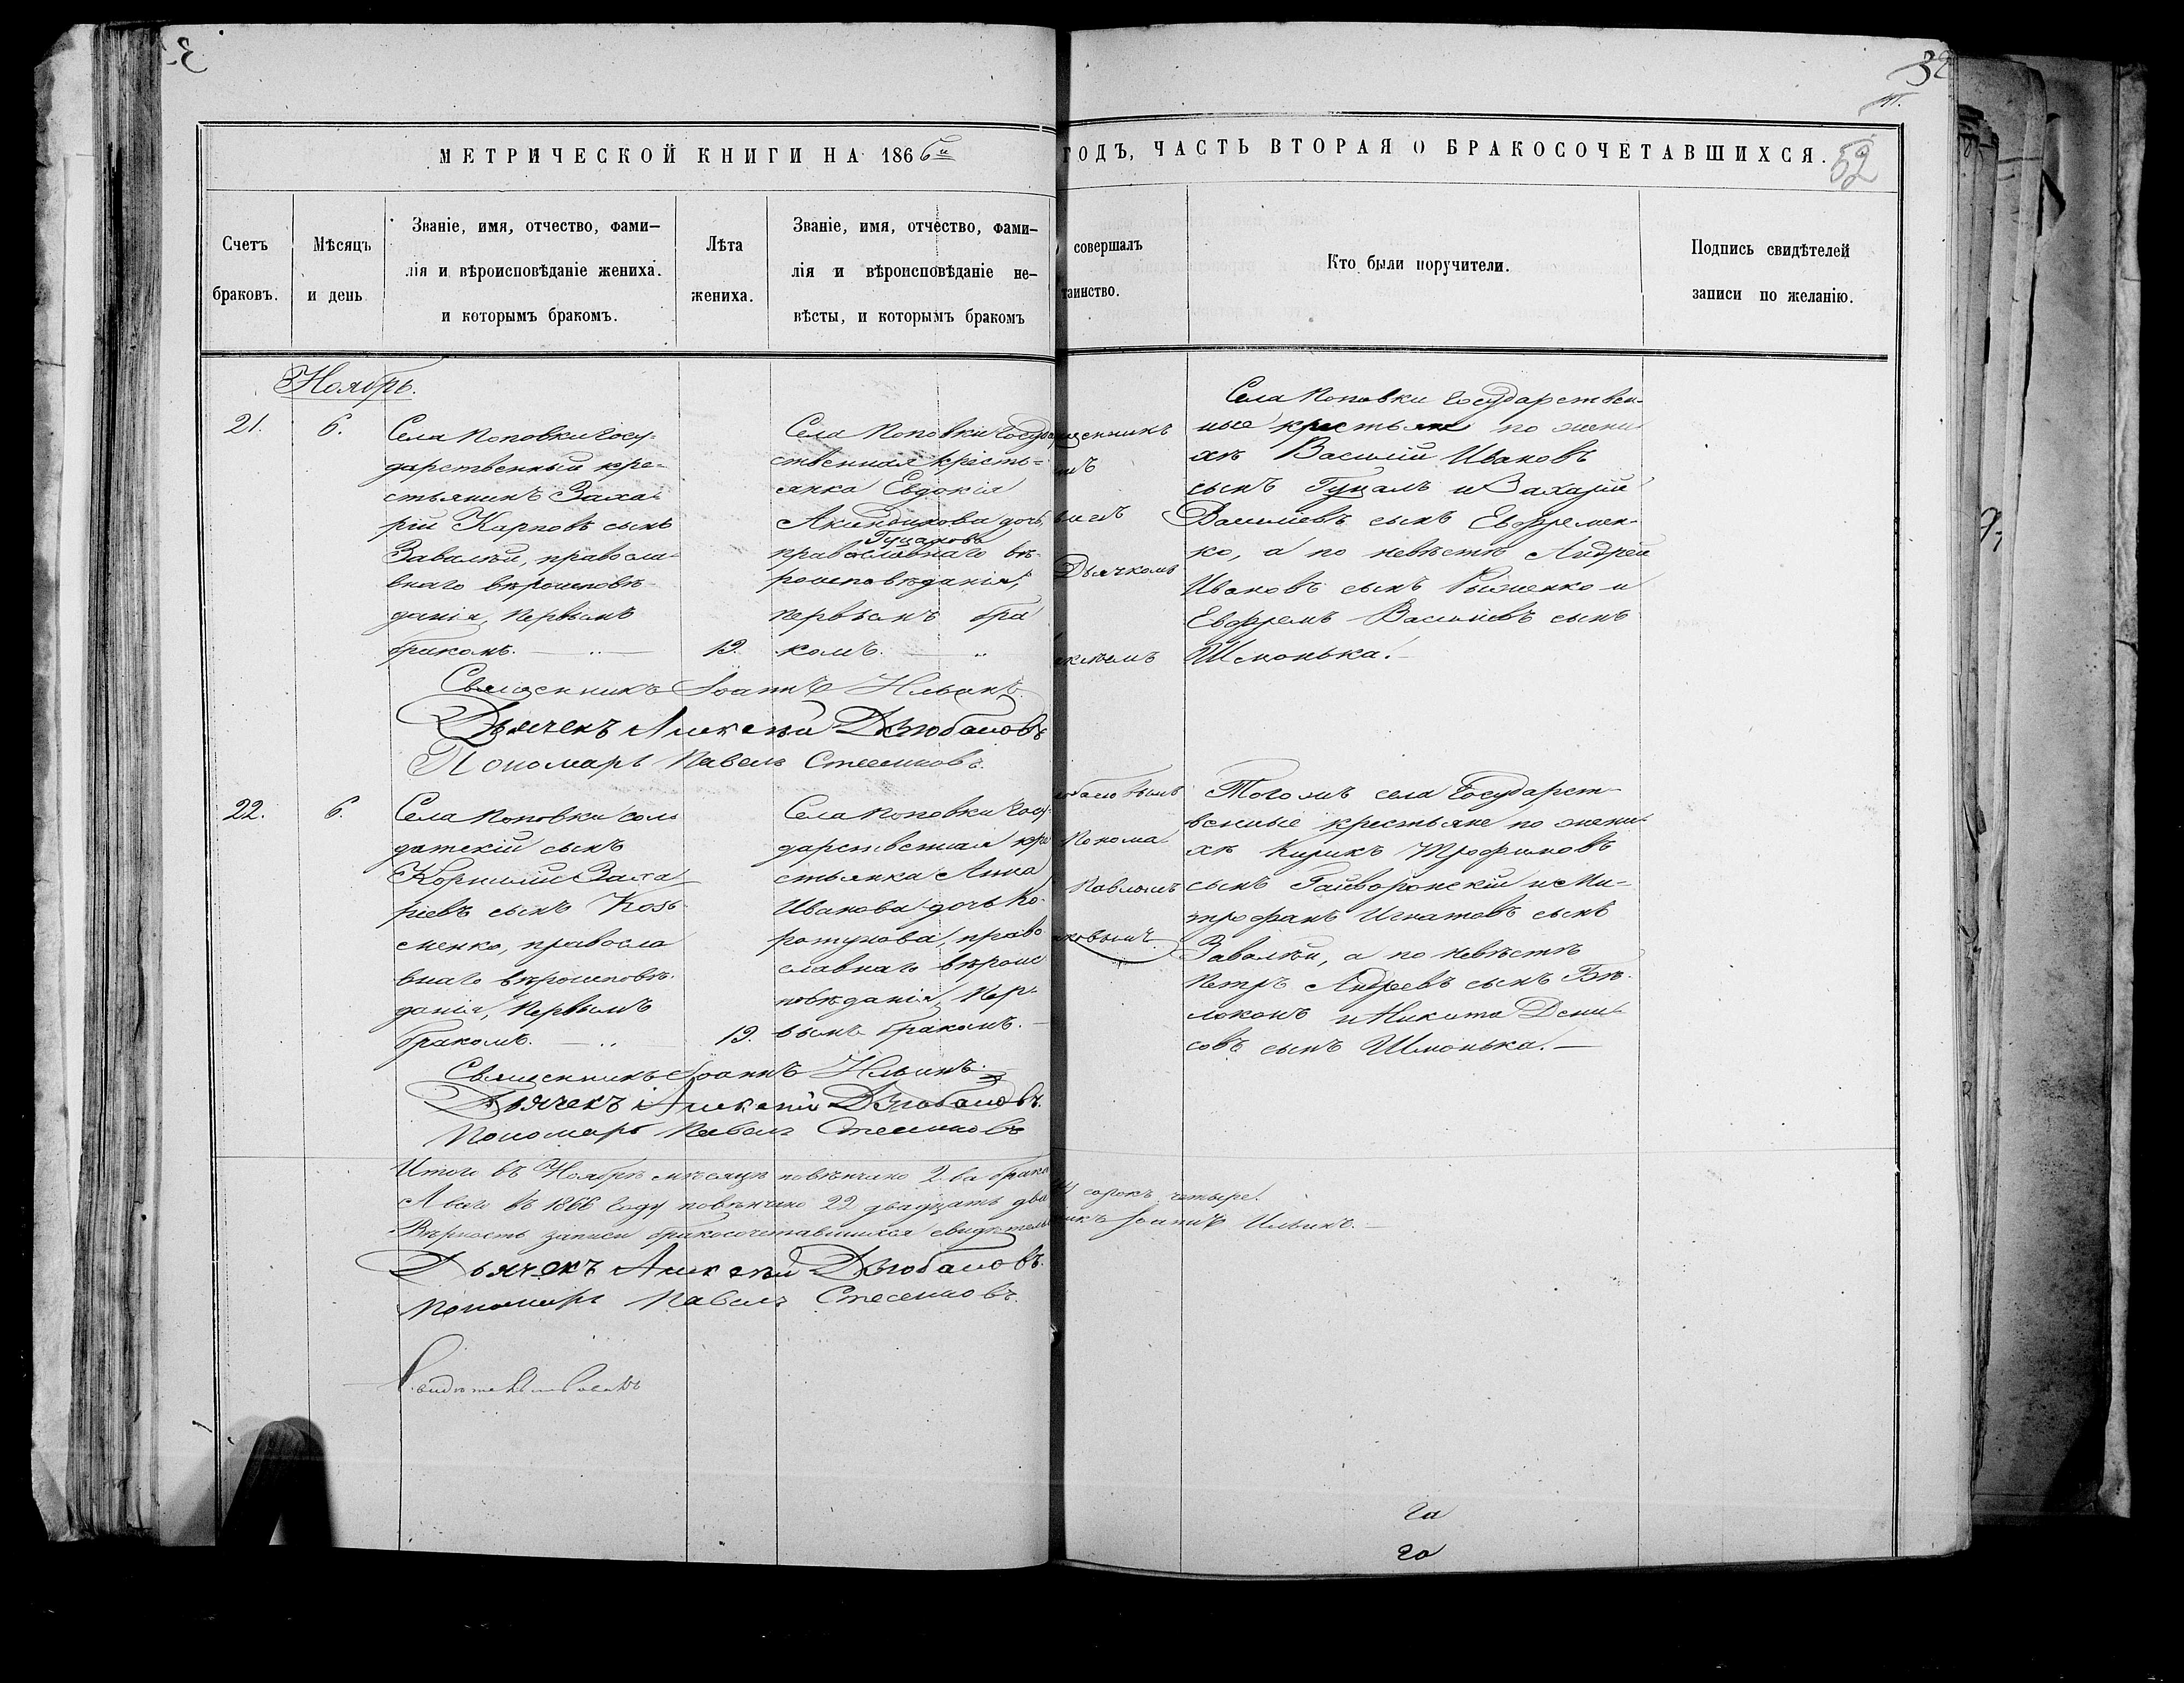 32
МЕТРИЧЕСКОЙ КНИГИ НА 1866й
ГОДЪ, ЧАСТЬ ВТОРАЯ О БРАКОСОЧЕТАВШИХСЯ.
52
Счетъ
браковъ.
Мѣсяцъ
и день
Званіе, имя, отчество, фами-
лія и вѣроисповѣданіе жениха.
и которымъ бракомъ.
Лѣта
жениха.
Званіе, имя, отчество, фами-
лія и вѣроисповѣданіе не-
вѣсты, и которымъ бракомъ
совершалъ
таинство.
Кто были поручители.
Подпись свидѣтелей
записи по желанію.
Ноябрь.
21.
6.
Села Поповки госу-
дарственный кре-
стьянинъ Заха-
рій Карповъ сынъ
Завалѣй, правосла-
внаго вѣроисповѣ-
данія, первымъ
бракомъ.
19.
Села Поповки госуда
ственная кресть-
янка Евдокія
Акиндинова дочь,
Гуцалова
православнаго вѣ-
роисповѣданія,
первымъ бра
комъ.
щенникъ
Дьячкомъ
Села Поповки государствен-
ные крестьяне по жени-
хѣ Василій Ивановъ
сынъ Гуцалъ и Захарій
Васильевъ сынъ Евфремен-
ко, а по невѣстѣ Андрей
Ивановъ сынъ Рыженко и
Евфремъ Васильевъ сынъ
Шмонька.
Священникъ Іоаннъ Ильинъ.
Дьячекъ Алексѣй Дзюбановъ
Пономарь Павелъ Стесенковъ.
22.
6.
Села Поповки сол-
датскій сынъ
Корнилій Заха
ріевъ сынъ Козь
менко, правосла
внаго вѣроисповѣ-
данія, первымъ
бракомъ.
19.
Села Поповки госу-
дарственная кре
стьянка Анна
Иванова дочь Ко-
ротунова, право
славнаго вѣроис
повѣданія, пер-
вымъ бракомъ.
Понома
Павломъ
ковымъ.
Того жъ села государст-
венные крестьяне по жени-
хѣ Кирикъ Трофимовъ
сынъ Гайворонскій и Ми-
трофанъ Игнатовъ сынъ
Завалѣй, а по невѣстѣ
Петръ Андреевъ сынъ Бѣ-
локонъ и Никита Дени-
совъ сынъ Шмонька.
Священникъ Іоаннъ Ильинъ.
Дьячекъ Алексѣй Дзюбановъ.
Пономарь Павелъ Стесенковъ
Итого въ Ноябрѣ мѣсяцѣ повѣнчано 2-ва брака
А всего въ 1866 году повѣнчано 22 двадцать два
сорокъ четыре.
Вѣрность записи бракосочетавшихся свидѣтель
никъ Іоаннъ Ильинъ.
Дьячекъ Алексѣй Дзюбановъ.
Пономарь Павелъ Стесенковъ.
го